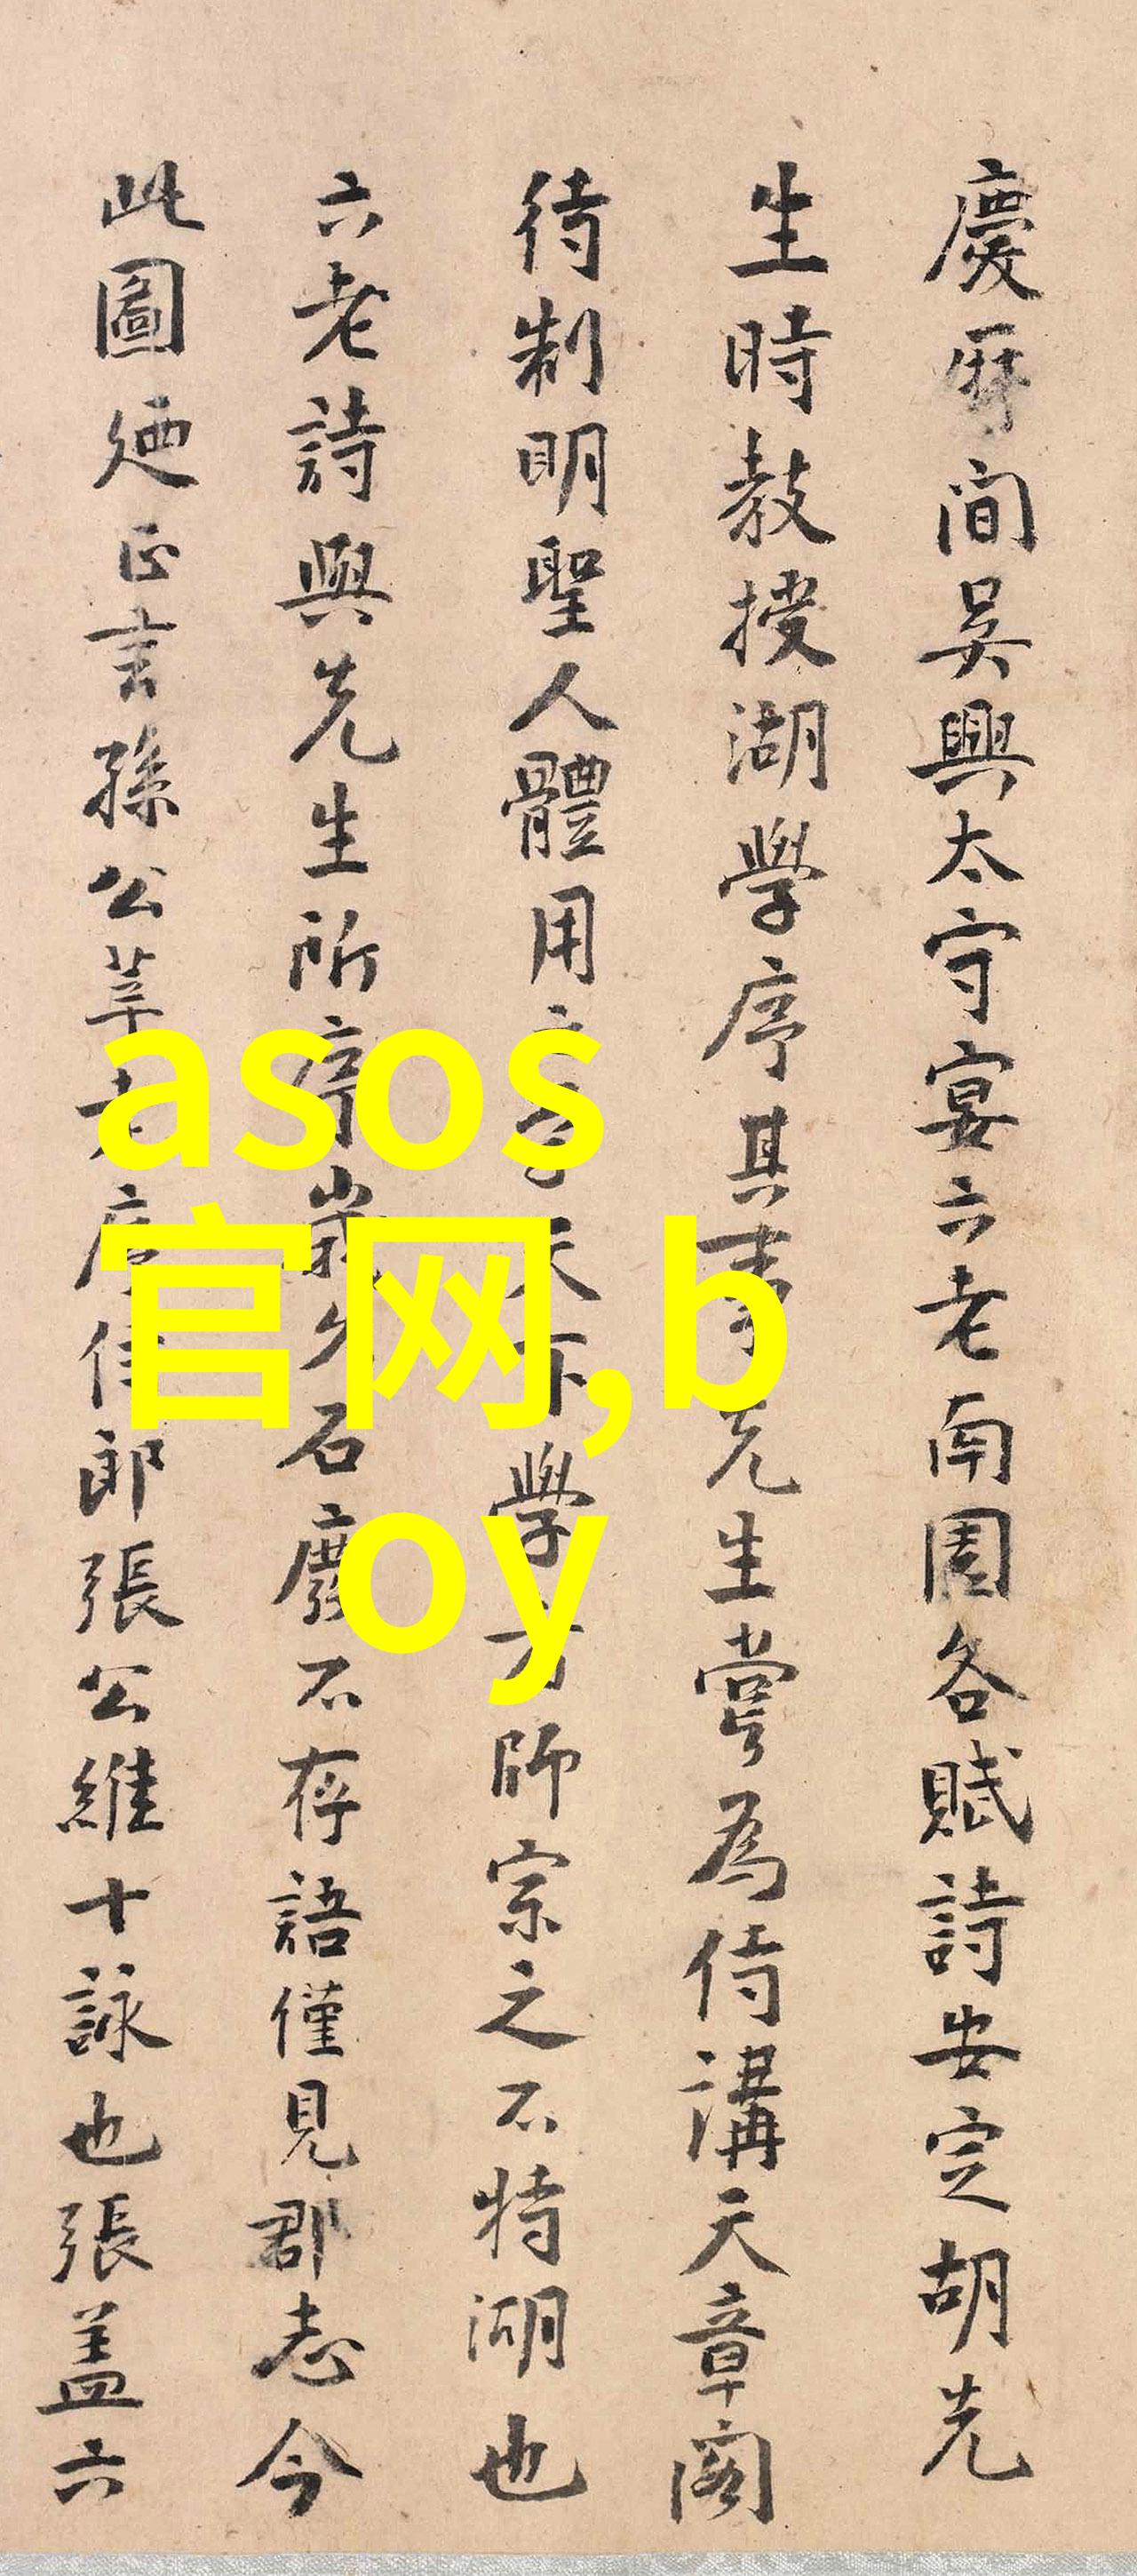 慶曆間吳興太守宴六老南園各賦詩安定胡先
生時教授湖學序其事先生嘗為侍講天章閣
待制明聖人體用之學天下學者師宗之不特湖也
六老詩與先生所序歲久石廢不存語僅見郡志今
此圖廼正言孫公莘老序侍郎張公維十詠也張蓋六
asos
官网,b
oy